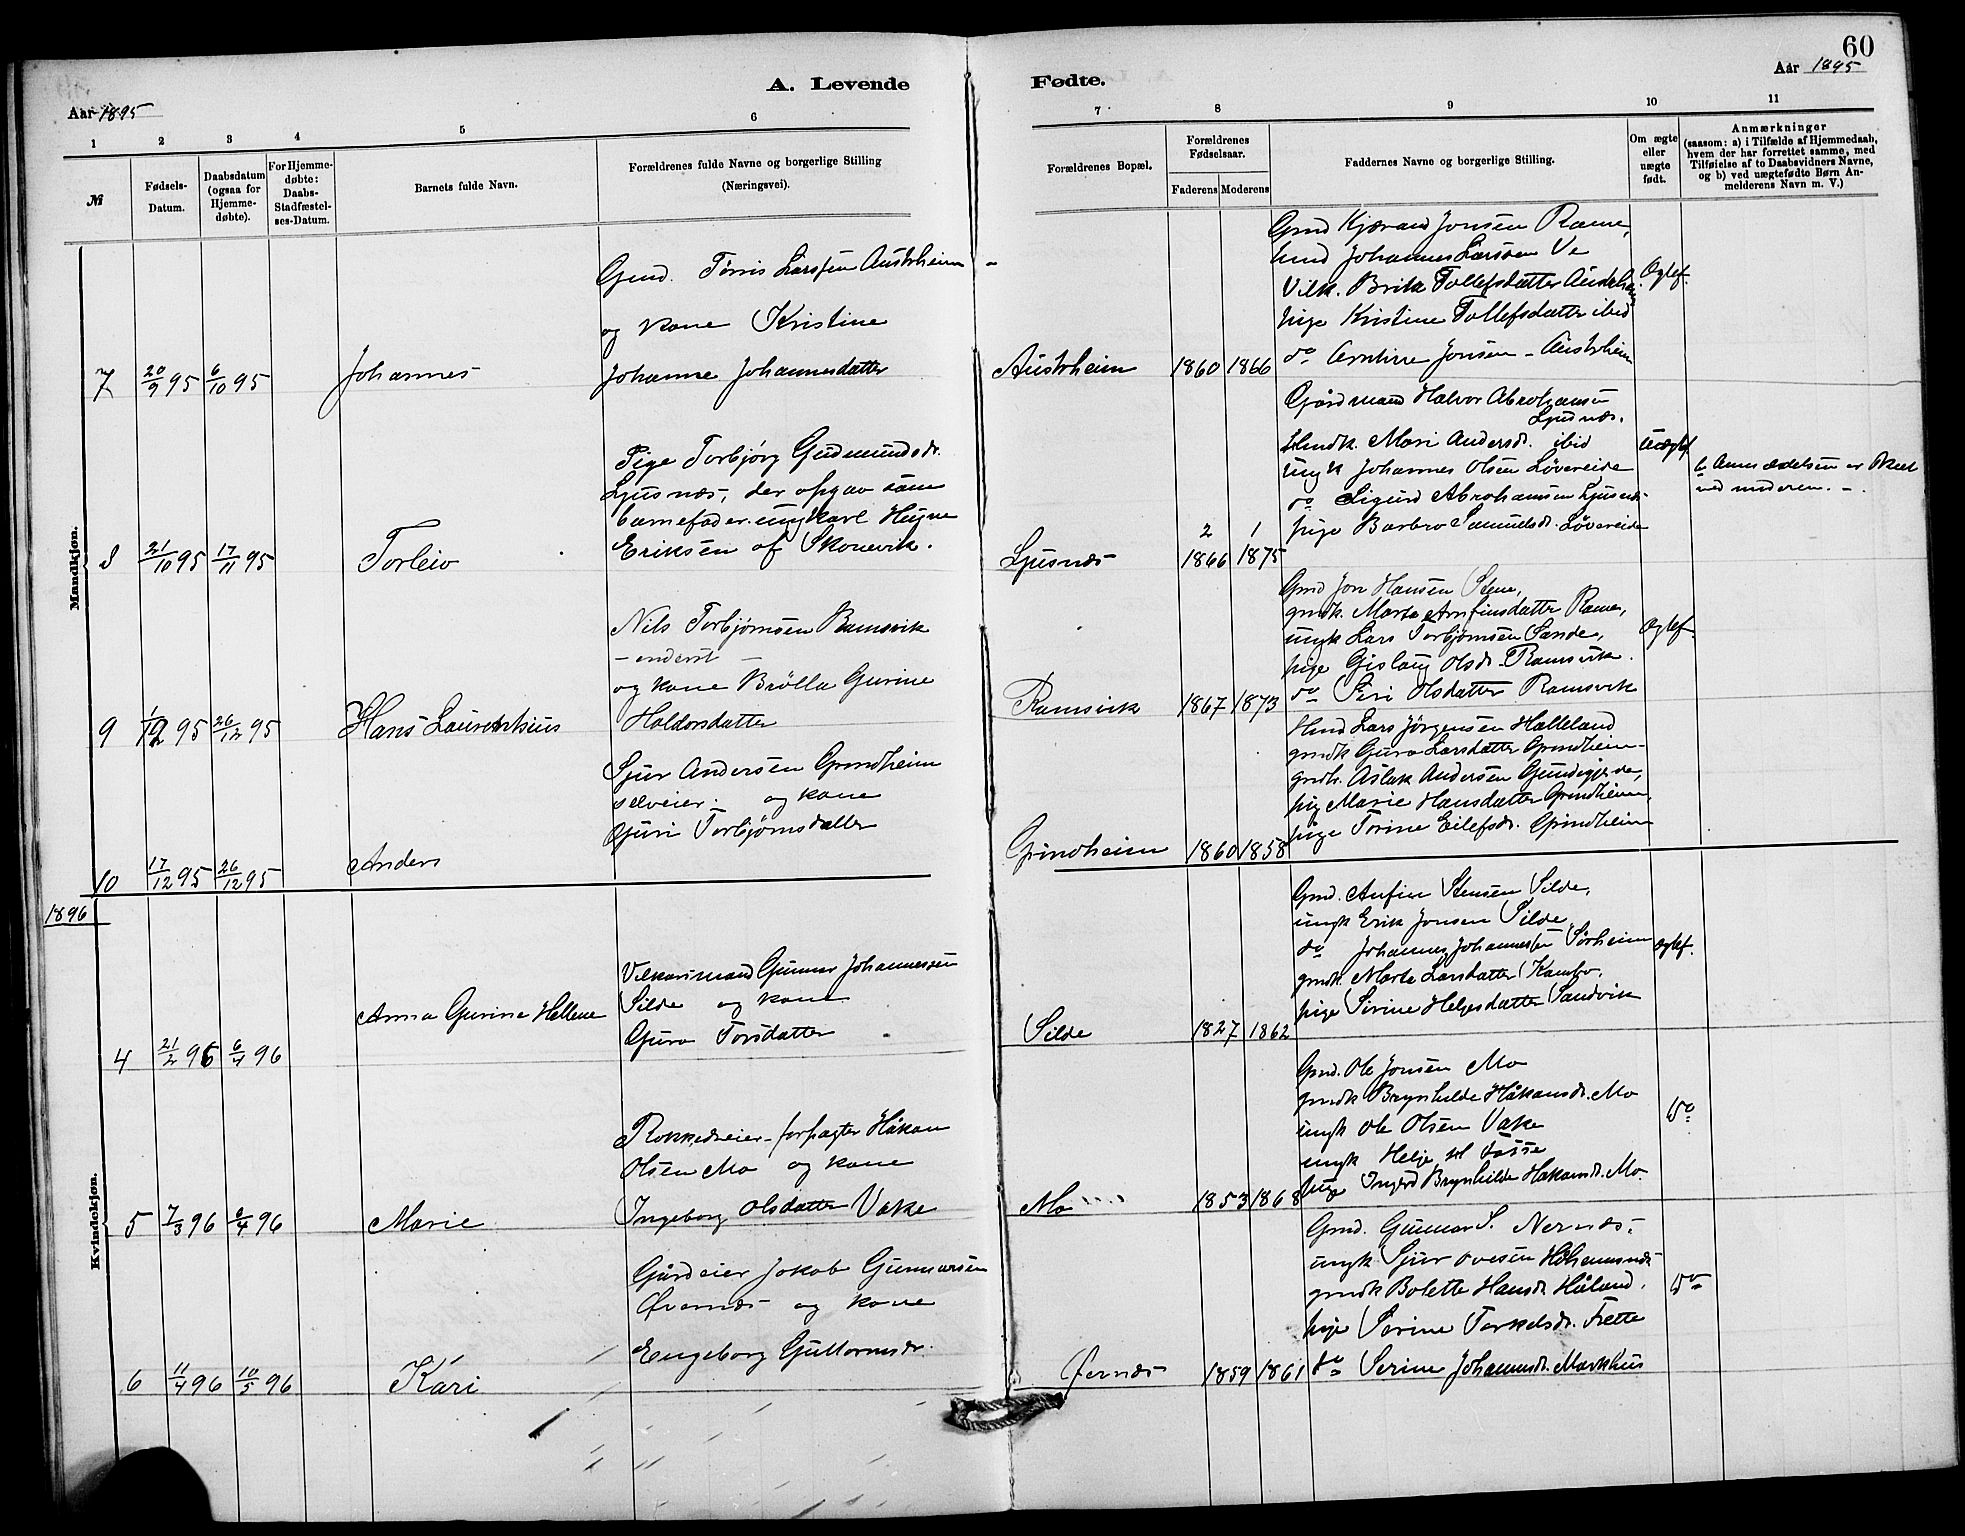 60
A. Levende
Fødte.
Aar 1895
Aar 1895
1 2 3 4 5 6
7 8 9 10 11
№
Fødsels-
Datum.
Daabsdatum
(ogsaa for
Hjemme-
døbte).
For Hjemme-
døbte:
Daabs-
Stadfæstel-
ses-Datum.
Barnets fulde Navn.
Forældrenes fulde Navne og borgerlige Stilling
(Næringsvei).
Forældrenes Bopæl.
Forældrenes
Fødselsaar.
Faderens Moderens
Faddernes Navne og Stilling.
Om ægte
eller
uægte
født.
Anmærkninger
(saasom: a) i Tilfælde af Hjemmedaab,
hvem der har forrettet samme, med
Tilføielse af to Daabsvidners Navne,
og b) ved uægtefødte Børn An-
melderens Navn m. V.)
Mandkjøn.
7 20/9 95 6/10 95 Johannes
Gmd. Tørris Larssen Austrheim
og kone Kristine
Johanne Johannesdatter
Austrheim 1860 1866
Gmd Kjærand Jonsen Rame,
hmd Johannes Larssen Ve
Vilk. Brita Tollefsdatter Austrheim
pige Kristine Tollefsdatter ibid
do Arntine Jonsen - Austrheim
Ægtef.
8 21/10 95 17/11 95 Torleiv
Pige Torbjørg Gudmundsdr.
Ljusnæs, der opgav som
barnefader. ungkarl Hugne
Eriksen af Skonevik.
Ljusnæs 2 1
1866 1875
Gårdmand Halvor Abrahamsen
Ljusnæs.
Hmdk. Mari Andersdr. ibid
ungk Johannes Olsen Løvereide
do Sigurd Abrahamsen Ljusnæs
pige Barbro Samuelsdr. Løvereide
Uægtef.
b Anmeldelsen er skeet
ved moderen.
9 1/12 95 26/12 95 Hans Laurentsius
Nils Torbjørnsen Ramsvik
- inderst -
og kone Brølla Gurine
Haldorsdatter
Ramsvik 1867 1873
Gmd Jon Hansen Stene,
gmdk. Marta Arnfinsdatter Rame,
ungk Lars Torbjørnsen Sande,
pige Gislaug Olsdr. Ramsvik.
do Siri Olsdatter Ramsvik
Ægtef.
10 17/12 95 26/12 95 Anders
Sjur Andersen Grindheim
selveier. og kone
Guri Torbjørnsdatter
Grindheim 1860 1858
Hmd Lars Jørgensen Halleland
gmdk Guro Larsdatter Grindheim
gmdk. Aslak Andersen
pig Marie Hansdatter Grindheim,
pige Torine Eilefsdr. Grindheim
1896
Kvindekjøn.
4 21/2 96 6/4 96 Anna Gurina Hellene
Vilkaarsmand Gunnar Johannessen
Silde og kone
Guro Torsdatter
Silde 1827 1862
Gmd. Anfin Stensen Silde,
ungk Erik Jonsen Silde
do Johannes Johannessen Sørheim
gmdk. Marta Larsdatter Kambo.
pige Sirine Helgesdatter Sandvik
Ægtef.
5 7/3 96 6/4 96 Marie
Rokkedreier - forpagter Håkon
Olsen Mo og kone
Ingeborg Olsdatter Vake
Mo 1853 1868
Gmd. Ole Jonsen Mo
gmdk Brynhilde Håkonsdr. Mo
ungk Ole Olsen Vake
ungk Helje Fosse
pige Ingerd Brynhilde Hakonsdr. Mo.
Do
6 11/4 96 10/5 96 Kari
Gårdeier Jokob Gunnarsen
Øvernæs og kone
Engeborg Guttormsdr.
Øvernæs 1859 1861
Gmd. Gunnar S. Nernæs.
ungk Sjur Ovesen
gmdk Bolette Hansdr. Håland.
pige Serine Torkelsdr. Frette
do Serine Johannsdr. Markhus
Do